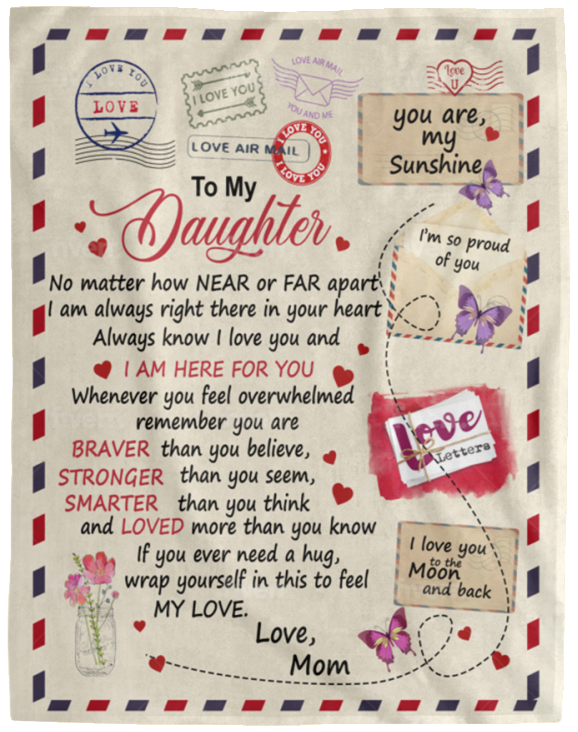 I LOVE YOU
LOVE
I LOVE YOU
LOVE AIR MAIL
YOU AND ME
Love
U
LOVE AIR MAIL
I LOVE YOU
I LOVE YOU
you are,
my
Sunshine
To My
Daughter
I'm so proud
of you
No matter how NEAR or FAR apart
I am always right there in your heart
Always know I love you and
I AM HERE FOR YOU
Whenever you feel overwhelmed
remember you are
BRAVER than you believe,
STRONGER than you seem,
SMARTER than you think
and LOVED more than you know
If you ever need a hug,
wrap yourself in this to feel
MY LOVE.
Love,
Mom
Love
Letters
I love you
to the
Moon
and back